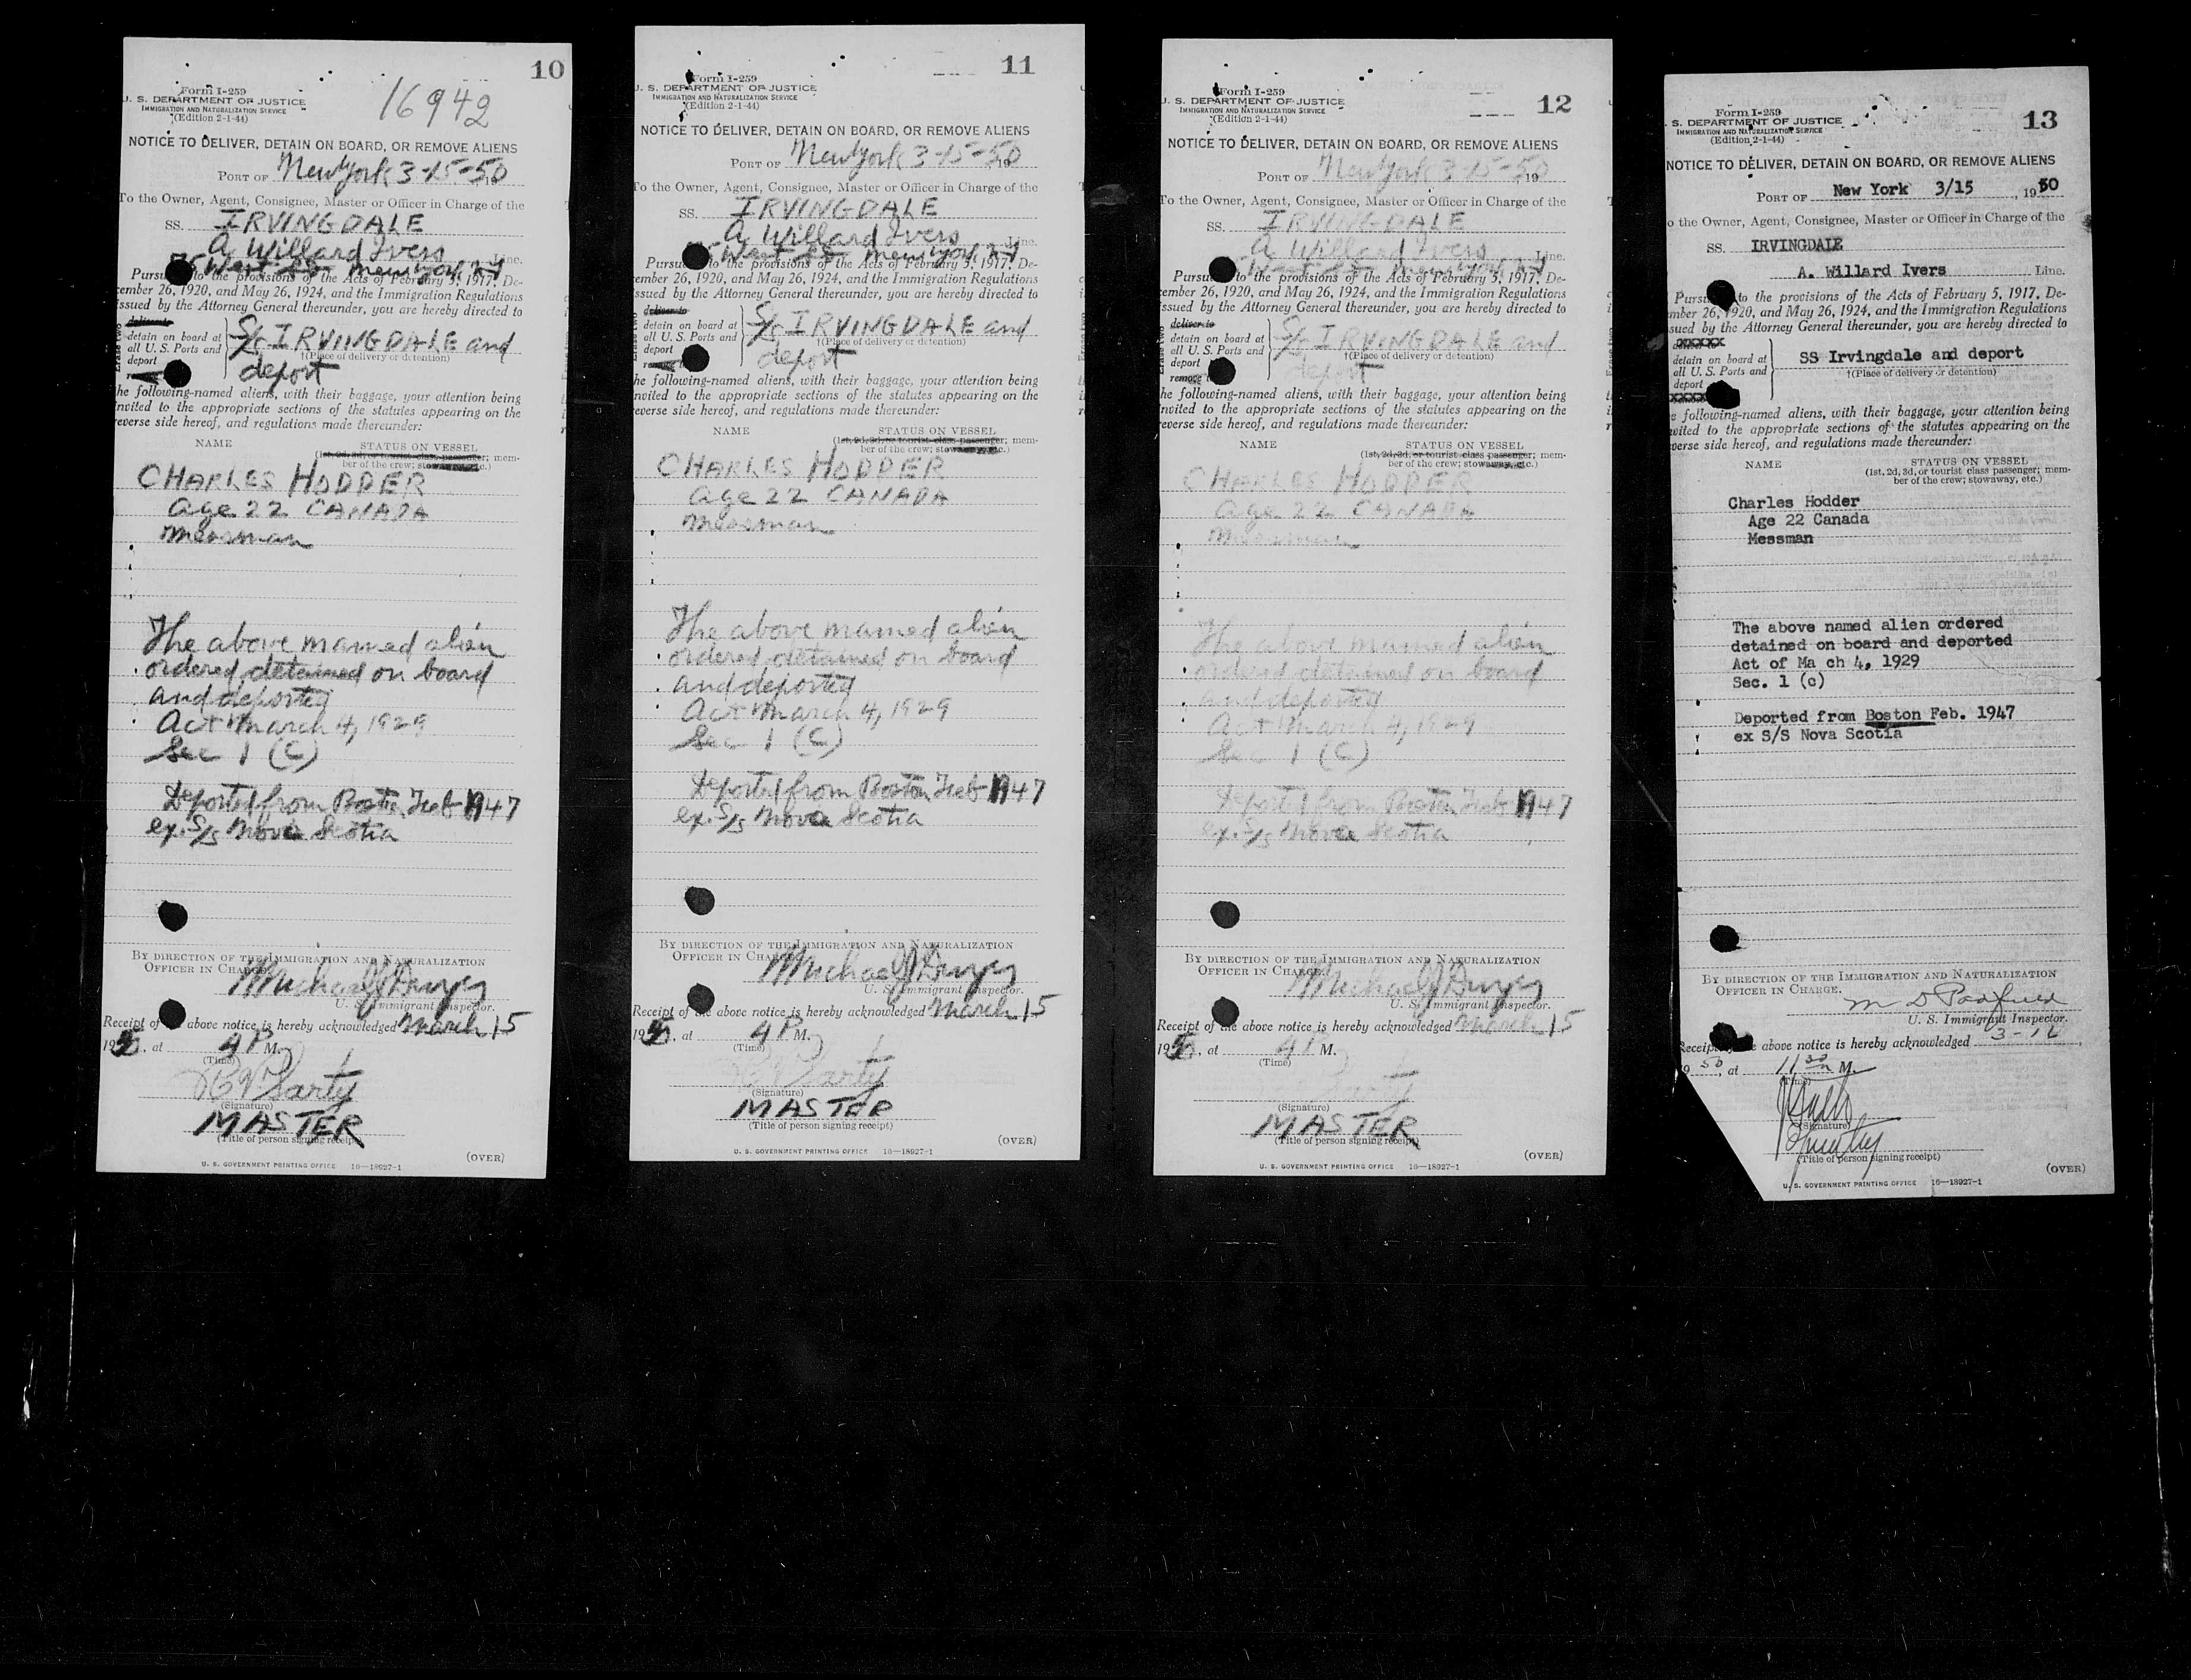 10
Form I-259
U. S. DEPARTMENT OF JUSTICE
IMMIGRATION AND NATURALIZATION SERVICE
(Edition 2-1-44)
16942
NOTICE TO DELIVER, DETAIN ON BOARD, OR REMOVE ALIENS
PORT OF New York 3-15-50
To the Owner, Agent, Consignee, Master or Officer in Charge of the
SS. IRVINGDALE
A Willard Ivers Line.
75 West St New York NY
Pursu to the provisions of the Acts of February 5, 1917, De-
cember 26, 1920, and May 26, 1924, and the Immigration Regulations
issued by the Attorney General thereunder, you are hereby directed to
deliver to
detain on board at
all U. S. Ports and
deport
S/S IRVINGDALE and
†(Place of delivery or detention)
deport
he following-named aliens, with their baggage, your attention being
nvited to the appropriate sections of the statutes appearing on the
reverse side hereof, and regulations made thereunder:
NAME STATUS ON VESSEL
(1st, 2d, 3d, or tourist class passenger; mem-
ber of the crew; stowaway, etc.)
CHARLES HODDER
Age 22 CANADA
Messman
The above named alien
ordered detained on board
and deported
Act March 4, 1929
Sec 1 (C)
Deported from Boston Feb 1947
ex. S/S Nova Scotia
BY DIRECTION OF THE IMMIGRATION AND NATURALIZATION
OFFICER IN CHARGE.
Michael J Dwyer
U. S. Immigrant Inspector.
Receipt of above notice is hereby acknowledged March 15
1950, at 4 P M.
(Time)
(Signature)
MASTER
(Title of person signing receipt)
(OVER)
U. S. GOVERNMENT PRINTING OFFICE 16—18927-1
11
Form I-259
U. S. DEPARTMENT OF JUSTICE
IMMIGRATION AND NATURALIZATION SERVICE
(Edition 2-1-44)
NOTICE TO DELIVER, DETAIN ON BOARD, OR REMOVE ALIENS
PORT OF New York 3-15-50 19
To the Owner, Agent, Consignee, Master or Officer in Charge of the
SS. IRVINGDALE
A Willard Ivers Line.
75 West St New York NY
Pursu to the provisions of the Acts of February 5, 1917, De-
cember 26, 1920, and May 26, 1924, and the Immigration Regulations
issued by the Attorney General thereunder, you are hereby directed to
deliver to
detain on board at
all U. S. Ports and
deport
S/S IRVINGDALE and
†(Place of delivery or detention)
deport
he following-named aliens, with their baggage, your attention being
nvited to the appropriate sections of the statutes appearing on the
reverse side hereof, and regulations made thereunder:
NAME STATUS ON VESSEL
(1st, 2d, 3d, or tourist class passenger; mem-
ber of the crew; stowaway, etc.)
CHARLES HODDER
Age 22 CANADA
Messman
The above named alien
ordered detained on board
and deported
Act March 4, 1929
Sec 1 (C)
Deported from Boston Feb 1947
ex. S/S Nova Scotia
BY DIRECTION OF THE IMMIGRATION AND NATURALIZATION
OFFICER IN CHARGE.
Michael J Dwyer
U. S. Immigrant Inspector.
Receipt of the above notice is hereby acknowledged March 15
1950, at 4 P M.
(Time)
(Signature)
MASTER
(Title of person signing receipt)
(OVER)
U. S. GOVERNMENT PRINTING OFFICE 16—18927-1
12
Form I-259
U. S. DEPARTMENT OF JUSTICE
IMMIGRATION AND NATURALIZATION SERVICE
(Edition 2-1-44)
NOTICE TO DELIVER, DETAIN ON BOARD, OR REMOVE ALIENS
PORT OF New York 3-15-50 19
To the Owner, Agent, Consignee, Master or Officer in Charge of the
SS. IRVINGDALE
A Willard Ivers Line.
75 West St New York NY
Pursu to the provisions of the Acts of February 5, 1917, De-
cember 26, 1920, and May 26, 1924, and the Immigration Regulations
issued by the Attorney General thereunder, you are hereby directed to
deliver to
detain on board at
all U. S. Ports and
deport
remove
S/S IRVINGDALE and
†(Place of delivery or detention)
deport
he following-named aliens, with their baggage, your attention being
nvited to the appropriate sections of the statutes appearing on the
reverse side hereof, and regulations made thereunder:
NAME STATUS ON VESSEL
(1st, 2d, 3d, or tourist class passenger; mem-
ber of the crew; stowaway, etc.)
CHARLES HODDER
Age 22 CANADA
Messman
The above named alien
ordered detained on board
and deported
Act March 4, 1929
Sec 1 (C)
Deported from Boston Feb 1947
ex. S/S Nova Scotia
BY DIRECTION OF THE IMMIGRATION AND NATURALIZATION
OFFICER IN CHARGE.
Michael J Dwyer
U. S. Immigrant Inspector.
Receipt of the above notice is hereby acknowledged March 15
1950, at 4 P M.
(Time)
(Signature)
MASTER
(Title of person signing receipt)
(OVER)
U. S. GOVERNMENT PRINTING OFFICE 16—18927-1
13
Form I-259
S. DEPARTMENT OF JUSTICE
IMMIGRATION AND NATURALIZATION SERVICE
(Edition 2-1-44)
NOTICE TO DELIVER, DETAIN ON BOARD, OR REMOVE ALIENS
PORT OF New York 3/15, 1950
o the Owner, Agent, Consignee, Master or Officer in Charge of the
SS. IRVINGDALE
A. Willard Ivers Line.
Pursu to the provisions of the Acts of February 5, 1917, De-
mber 26, 1920, and May 26, 1924, and the Immigration Regulations
sued by the Attorney General thereunder, you are hereby directed to
detain on board at
all U. S. Ports and
deport
SS Irvingdale and deport
†(Place of delivery or detention)
e following-named aliens, with their baggage, your attention being
vited to the appropriate sections of the statutes appearing on the
verse side hereof, and regulations made thereunder:
NAME STATUS ON VESSEL
(1st, 2d, 3d, or tourist class passenger; mem-
ber of the crew; stowaway, etc.)
Charles Hodder
Age 22 Canada
Messman
The above named alien ordered
detained on board and deported
Act of Ma ch 4, 1929
Sec. 1 (c)
Deported from Boston Feb. 1947
ex S/S Nova Scotia
BY DIRECTION OF THE IMMIGRATION AND NATURALIZATION
OFFICER IN CHARGE.
U. S. Immigrant Inspector.
Receipt above notice is hereby acknowledged 3-16
9 50, at 11 M.
(Time)
(Signature)
(Title of person signing receipt)
(OVER)
U. S. GOVERNMENT PRINTING OFFICE 16—18927-1